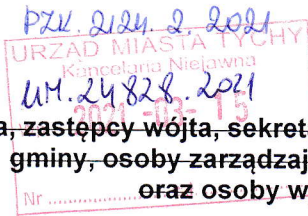 PZK. 2124. 2. 2021
URZĄD MIASTA TYCHY
Kancelaria Niejawna
UM. 24828. 2021
2021 -03- 15
a, zastępcy wójta, sekret
gminy, osoby zarządzaj
Nr ........ oraz osoby w